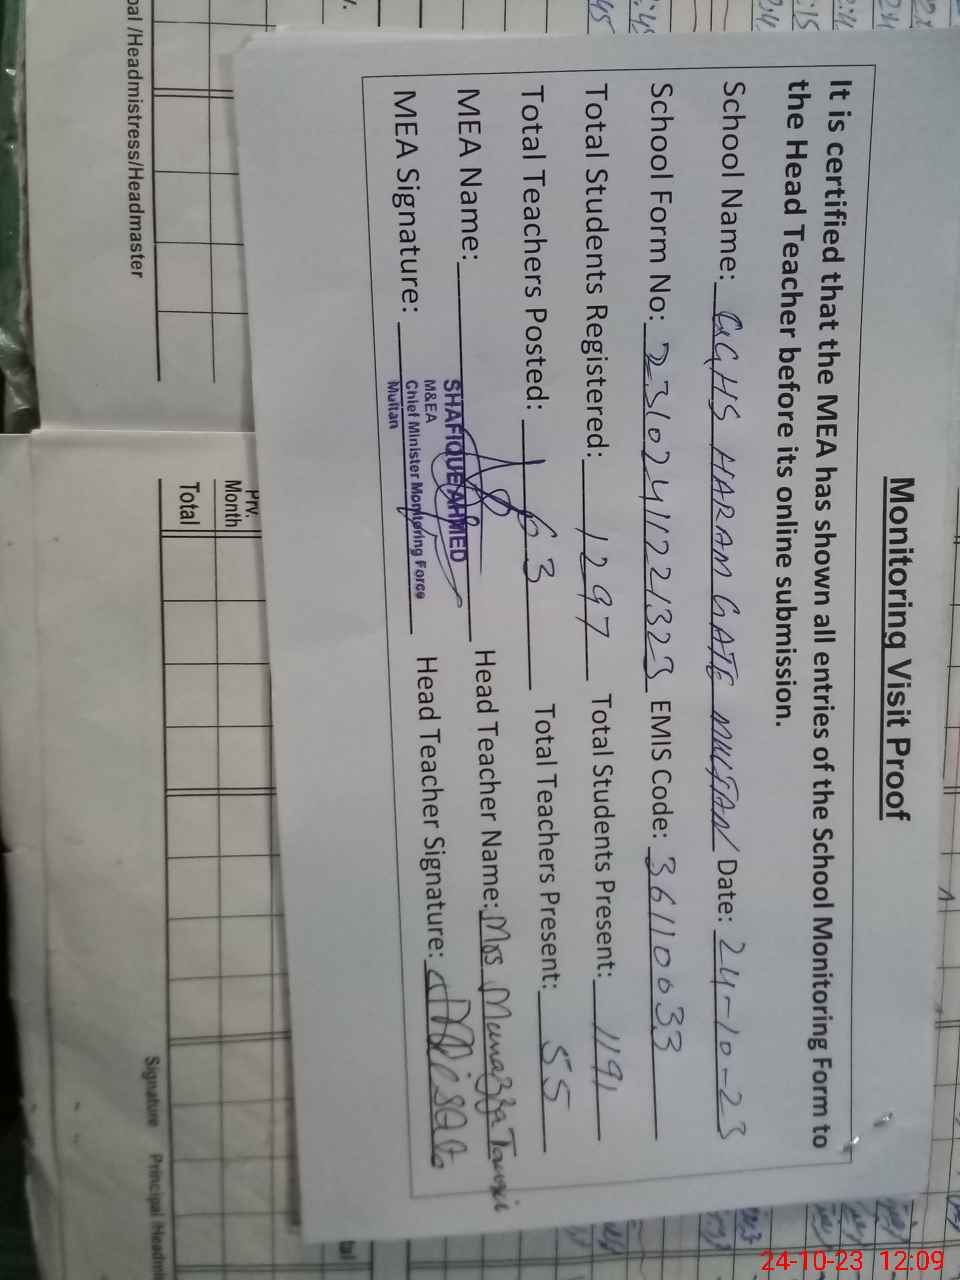 Monitoring Visit Proof
It is certified that the MEA has shown all entries of the School Monitoring Form to
the Head Teacher before its online submission.
School Name: GGHS HARAM GATE MULTAN Date: 24-10-23
School Form No: 23102411221323 EMIS Code: 36110033
Total Students Registered: 1297 Total Students Present: 1191
Total Teachers Posted: 63 Total Teachers Present: 55
MEA Name: Head Teacher Name: Mrs Munazza
SHAFIQUE AHMED
M&EA
Chief Minister Monitoring Force
Multan
MEA Signature: Head Teacher Signature:
pal /Headmistress/Headmaster
Prv.
Month
Total
Signature Principal
24-10-23 12:09